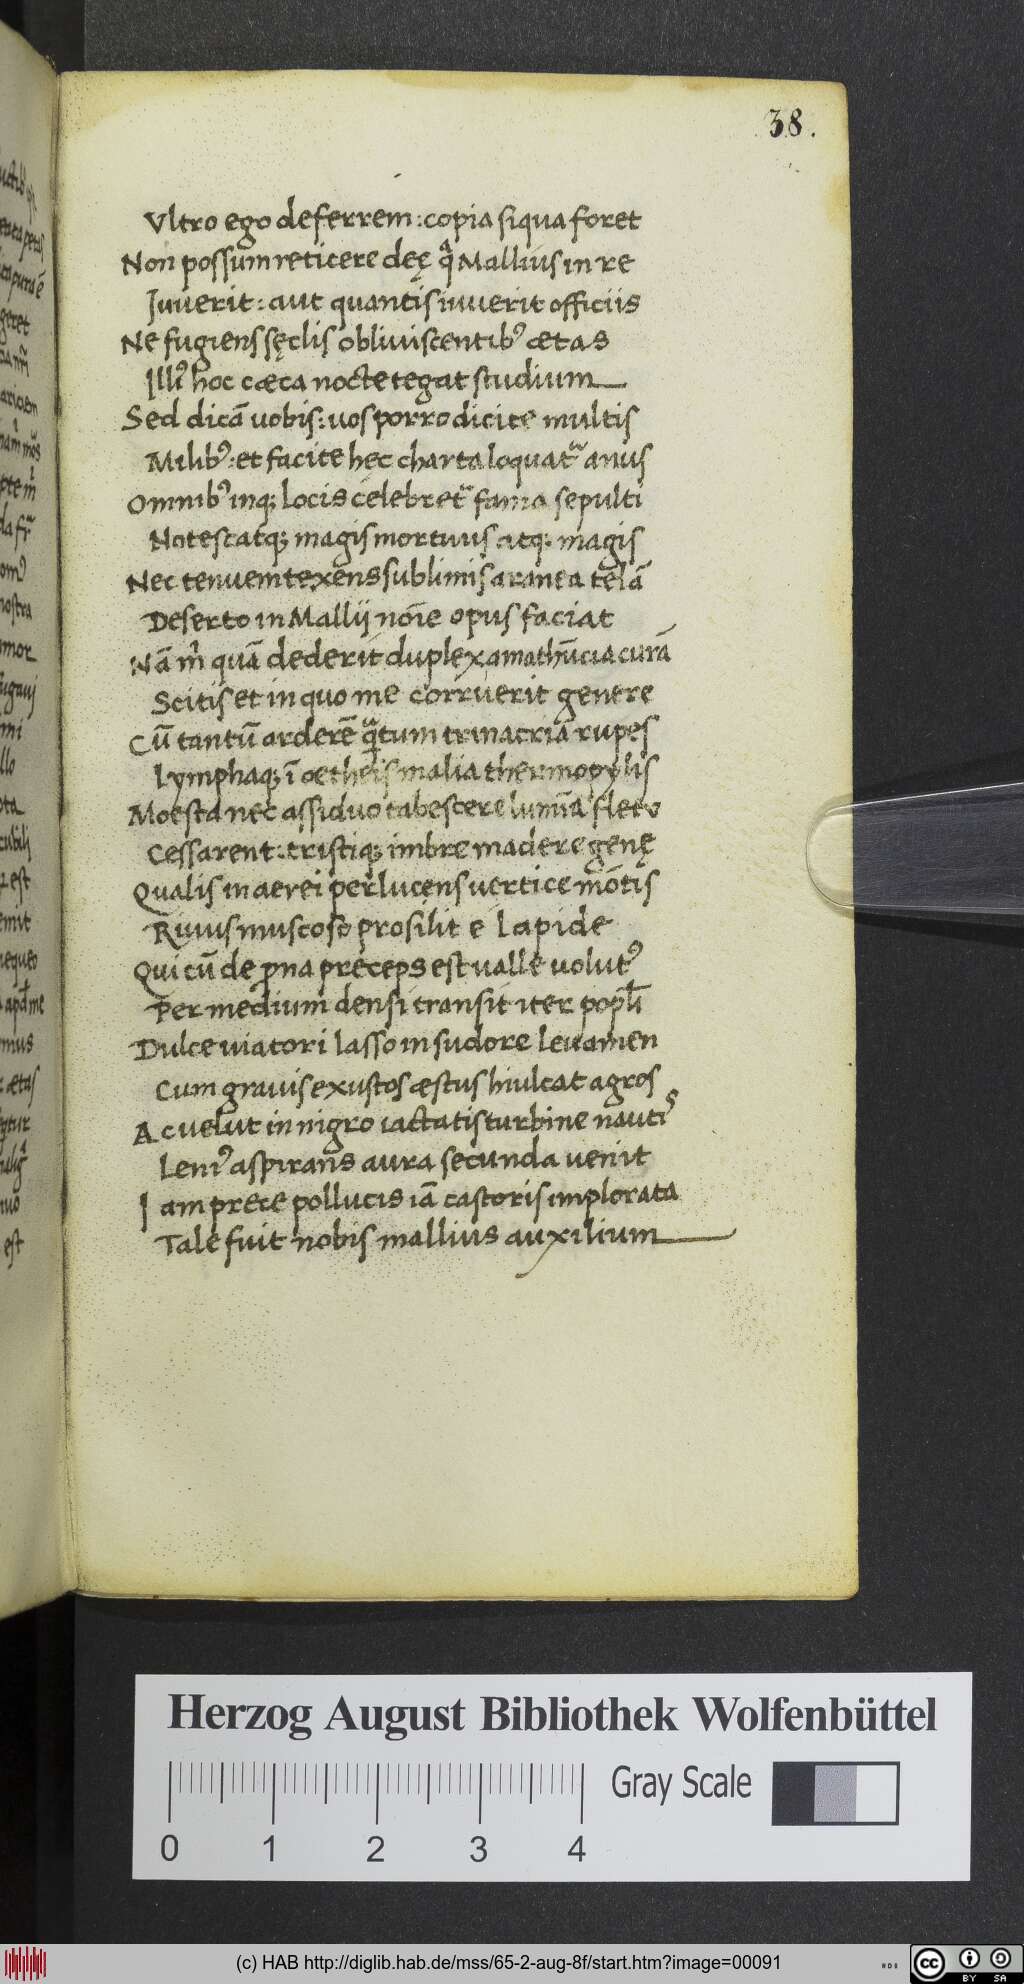 38.
Vltro ego deferrem: copia siqua foret
Non possum reticere deę qͣ Mallius in re
Juuerit: aut quantis iuuerit officiis
Ne fugiens sęclis obliuiscentibꝰ ætas
Illiꝰ hoc cæca nocte tegat studium
Sed dicā uobis: uos porro dicite multis
Milibꝰ: et facite hęc charta loquatᷣ anus
Omnibꝰ inqꝫ locis celebretᷣ fama sepulti
Notescatqꝫ magis mortuus atqꝫ magis
Nec tenuem texens sublimis aranea telā
Deserto in Mallij noīe opus faciat
Nā m̄ quā dederit duplex amathūcia curā
Scitis et in quo me corruerit genere
Cū tantū arderē qͣtum trinacriā rupes
Lymphaqꝫ ī oetheis malia thermopylis
Moesta nec assiduo tabescere lumīa fletu
Cessarent: tristiqꝫ imbre madere genę
Qualis in aerei perlucens uertice mōtis
Riuus muscoso prosilit e lapide
Qui cū de ꝓna preceps est ualle uolutꝰ
Per medium densi transit iter popłi
Dulce uiatori lasso in sudore leuamen
Cum grauis exustos æstus hiulcat agros
Ac uelut in nigro iactatis turbine nautis
Leniꝰ aspirans aura secunda uenit
Iam prece pollucis iā castoris implorata
Tale fuit nobis mallius auxilium
Herzog August Bibliothek Wolfenbüttel
Gray Scale
0 1 2 3 4
(c) HAB http://diglib.hab.de/mss/65-2-aug-8f/start.htm?image=00091
cc BY SA